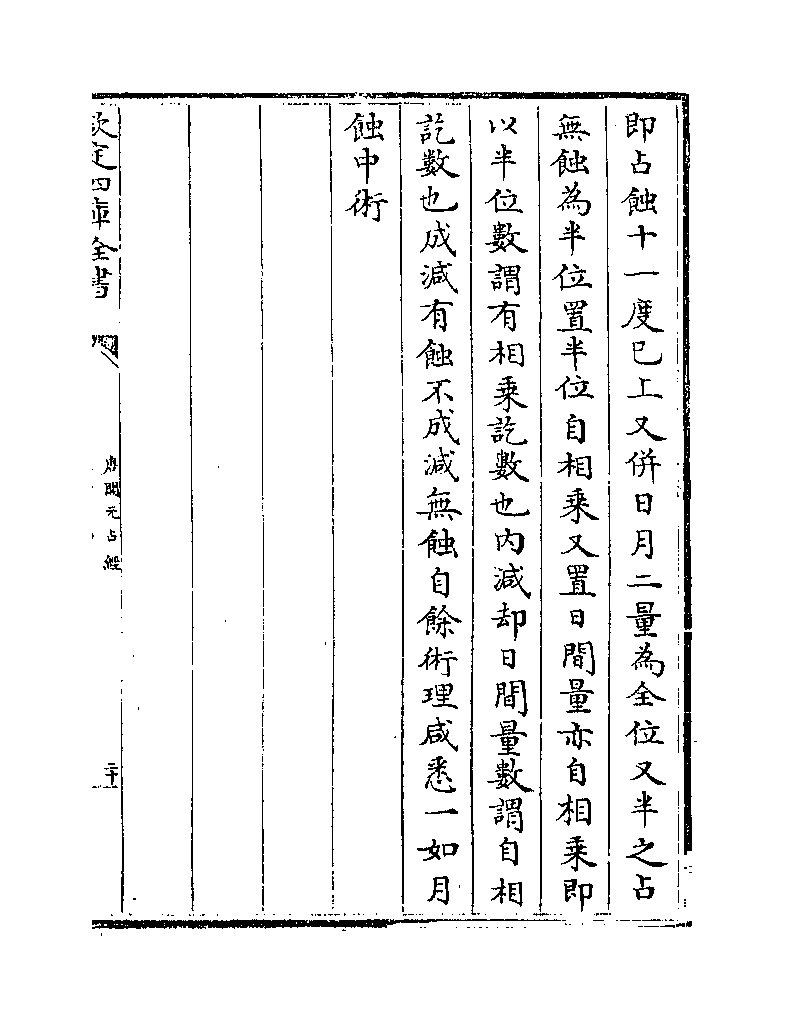 即占蝕十一度已上又併日月二量為全位又半之占
無蝕為半位置半位自相乘又置日間量亦自相乘即
以半位數謂有相乘訖數也內減却日間量數謂自相
訖數也成減有蝕不成減無蝕自餘術理咸悉一如月
蝕中術
欽定四庫全書
唐開元占經